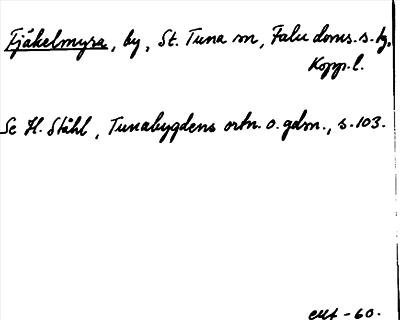 Fjäkelmyra, by, St. Tuna sn, Falu doms.s. tg,
Kopp. l.
Se H. Ståhl, Tunabygdens ortn. o. gdsn., s. 103.
-60.